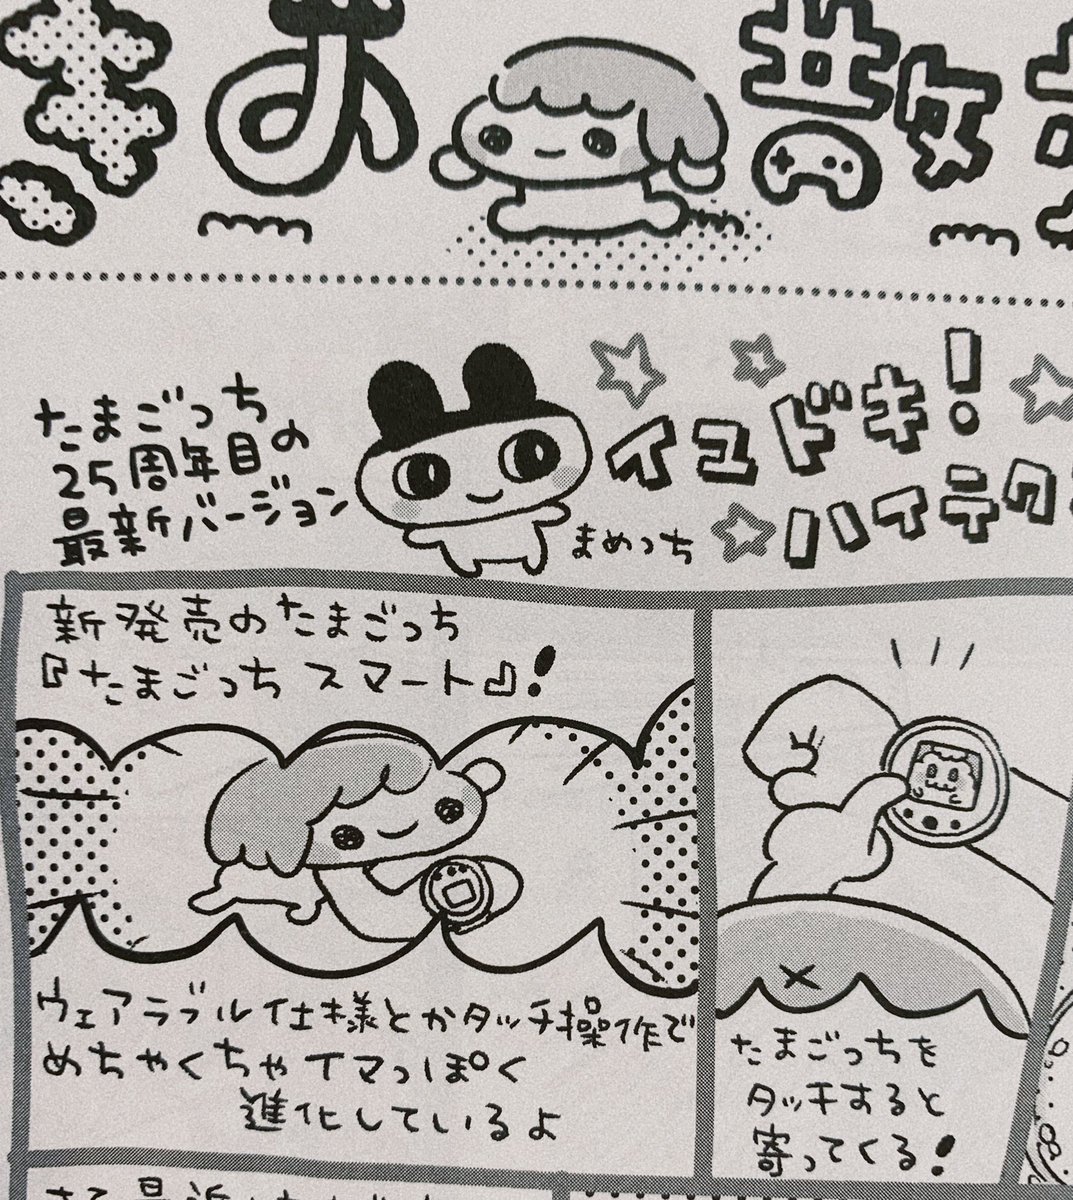 たまごっち
25周年目の
最新バージョン
まめっち
イマドキ!
ハイテク
新発売のたまごっち
『たまごっち スマート』!
ウェアラブル仕様とかタッチ操作で
めちゃくちゃイマっぽく
進化しているよ
たまごっちを
タッチすると
寄ってくる!